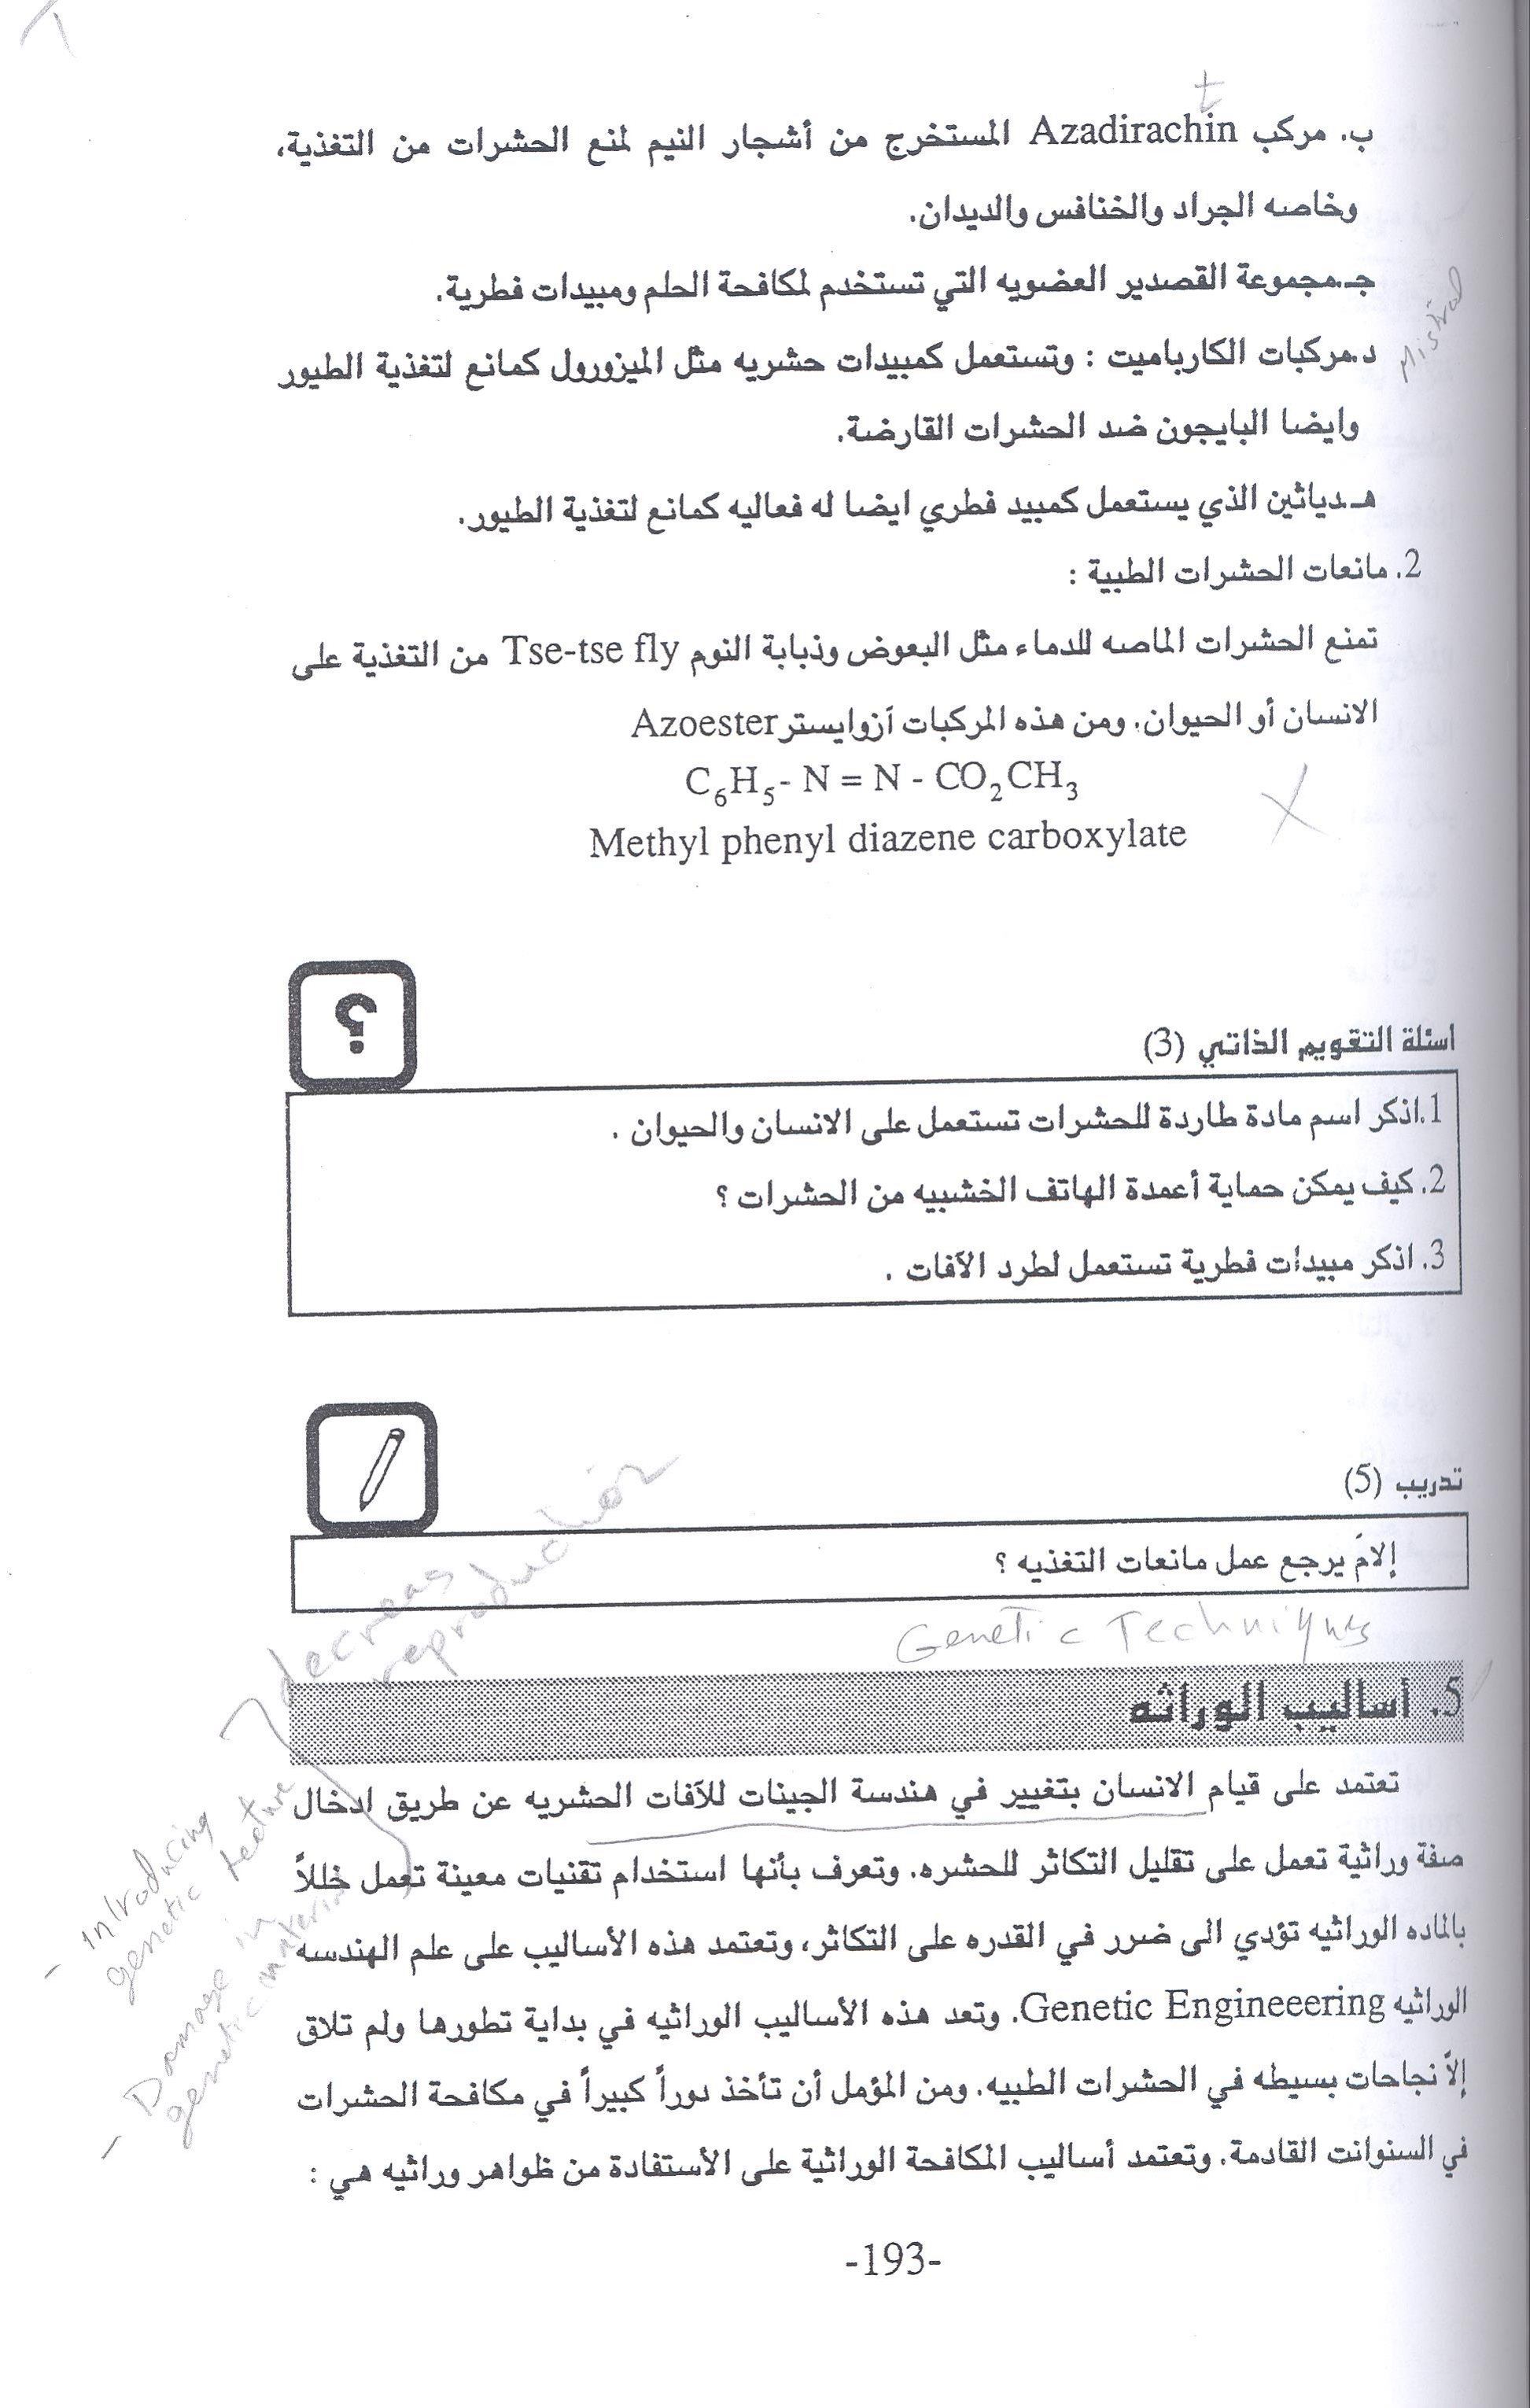 t
ب. مركب Azadirachin المستخرج من أشجار النيم لمنع الحشرات من التغذية،
وخاصه الجراد والخنافس والديدان.
جـ.مجموعة القصدير العضويه التي تستخدم لمكافحة الحلم ومبيدات فطرية.
د.مركبات الكارباميت : وتستعمل كمبيدات حشريه مثل الميزورول كمانع لتغذية الطيور
وايضا البايجون ضد الحشرات القارضة.
هـ.دياثين الذي يستعمل كمبيد فطري ايضا له فعاليه كمانع لتغذية الطيور.
2. مانعات الحشرات الطبية :
تمنع الحشرات الماصه للدماء مثل البعوض وذبابة النوم Tse-tse fly من التغذية على
الانسان أو الحيوان. ومن هذه المركبات آزوايستر Azoester
C₆H₅- N = N - CO₂CH₃
Methyl phenyl diazene carboxylate
؟
اسئلة التقويم الذاتي (3)
1.اذكر اسم مادة طاردة للحشرات تستعمل على الانسان والحيوان .
2. كيف يمكن حماية أعمدة الهاتف الخشبيه من الحشرات ؟
3. اذكر مبيدات فطرية تستعمل لطرد الآفات .
تدريب (5)
إلامَ يرجع عمل مانعات التغذيه ؟
Genetic Techniques
decreas
reproduction
5. أساليب الوراثه
تعتمد على قيام الانسان بتغيير في هندسة الجينات للآفات الحشريه عن طريق ادخال
صفة وراثية تعمل على تقليل التكاثر للحشره. وتعرف بأنها استخدام تقنيات معينة تعمل خللاً
بالماده الوراثيه تؤدي الى ضرر في القدره على التكاثر، وتعتمد هذه الأساليب على علم الهندسه
الوراثيه Genetic Engineeering. وتعد هذه الأساليب الوراثيه في بداية تطورها ولم تلاق
إلاّ نجاحات بسيطه في الحشرات الطبيه. ومن المؤمل أن تأخذ دوراً كبيراً في مكافحة الحشرات
في السنوانت القادمة. وتعتمد أساليب المكافحة الوراثية على الأستفادة من ظواهر وراثيه هي :
- introducing
genetic
- Damage in
genetic
-193-